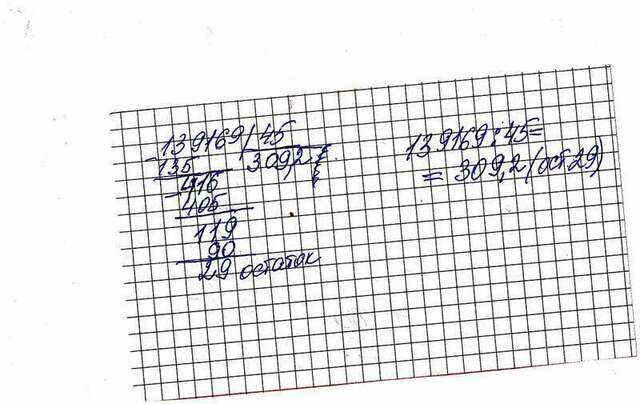 139169 45
135 309,2
416
405
119
90
29 остаток
139169:45=
= 309,2 (ост 29)